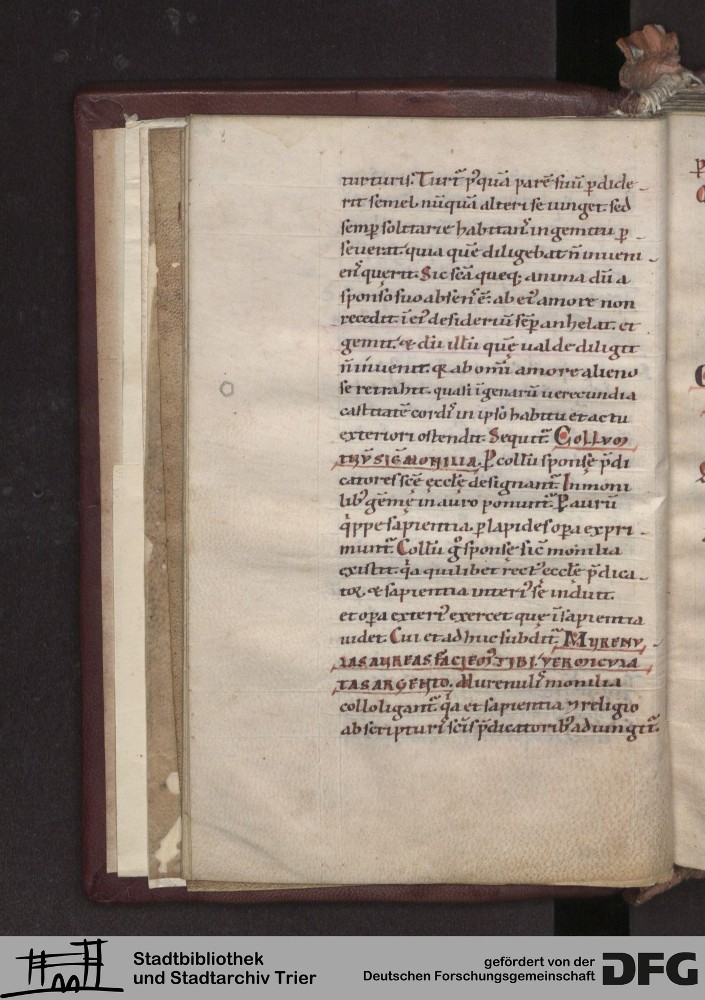 turturis. Turt̃ pꝰquã parẽ suũ ꝑdide-
rit semel nũquã alteri se iunget. sed
semꝑ solitarie habitanˢ in gemitu ꝑ-
seuerat. quia quẽ diligebat ñ inueni-
enˢ querit. Sic sc̃a queq; anima dũ a
sponso suo absenˢ ẽ. ab eiˢ amore non
recedit. ĩ eiˢ desideriũ sẽꝑ anhelat. et
gemit. & dũ illũ quẽ ualde diligit
ñ inuenit. & ab om̃i amore alieno
se retrahit. quasi ĩ genarũ uerecundia
castitatẽ cordiˢ in ipso habitu et actu
exteriori ostendit. Sequit̃. Collvm
trṽ sic̃ monilia. P collũ sponse p̃di
catores sc̃ę eccłe designant̃. In moni
libꝰ gẽmę in auro ponunt̃. P aurũ
q̇ppe sapientia. ꝑ lapides oꝑa expri-
munt̃. Collũ g̊ sponse sic̃ monilia
existit. q̇a quilibet rectˢ eccłe p̃dica-
tor. & sapientia interiˢ se induit.
et oꝑa exteriˢ exercet que ĩ sapientia
uidet. Cui et adhuc subdit̃. Myrenv
las avreas faciemˢ tibi. vermicvla
tas argento. Murenuliˢ monilia
colloligant̃. q̇a et sapientia ⁊ religio
ab scripturiˢ sc̃is p̃dicatoribꝰ adiungit̃.
Stadtbibliothek
und Stadtarchiv Trier
gefördert von der
Deutschen Forschungsgemeinschaft
DFG